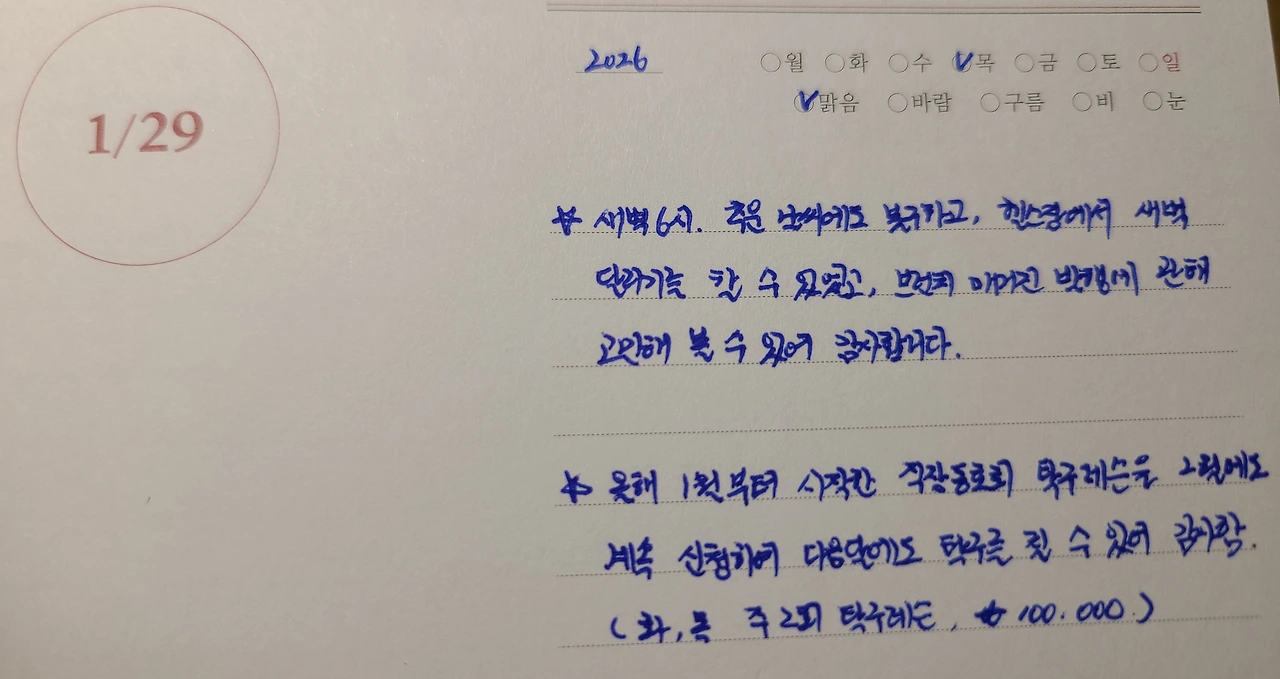 1/29
2026 ○월 ○화 ○수 ○목 ○금 ○토 ○일
○맑음 ○바람 ○구름 ○비 ○눈
☆ 새벽 6시. 추운 날씨에도 불구하고, 헬스장에서 새벽
달리기를 할 수 있었고, 이어진 방향에 관해
고민해 볼 수 있어 감사합니다.
☆ 올해 1월부터 시작한 직장동호회 탁구레슨을 2월에도
계속 신청하여 다음달에도 탁구를 칠 수 있어 감사함.
(화, 목 주2회 탁구레슨, 100.000)